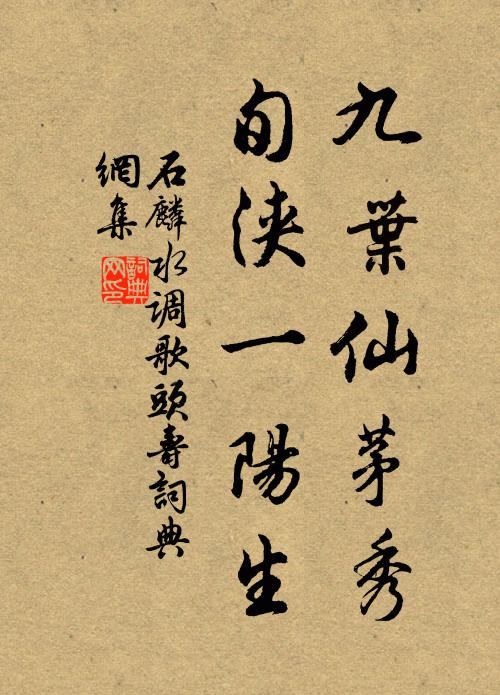 九葉仙茅秀
旬浹一陽生
石麟水調歌頭壽詞典
網集
詞典網印